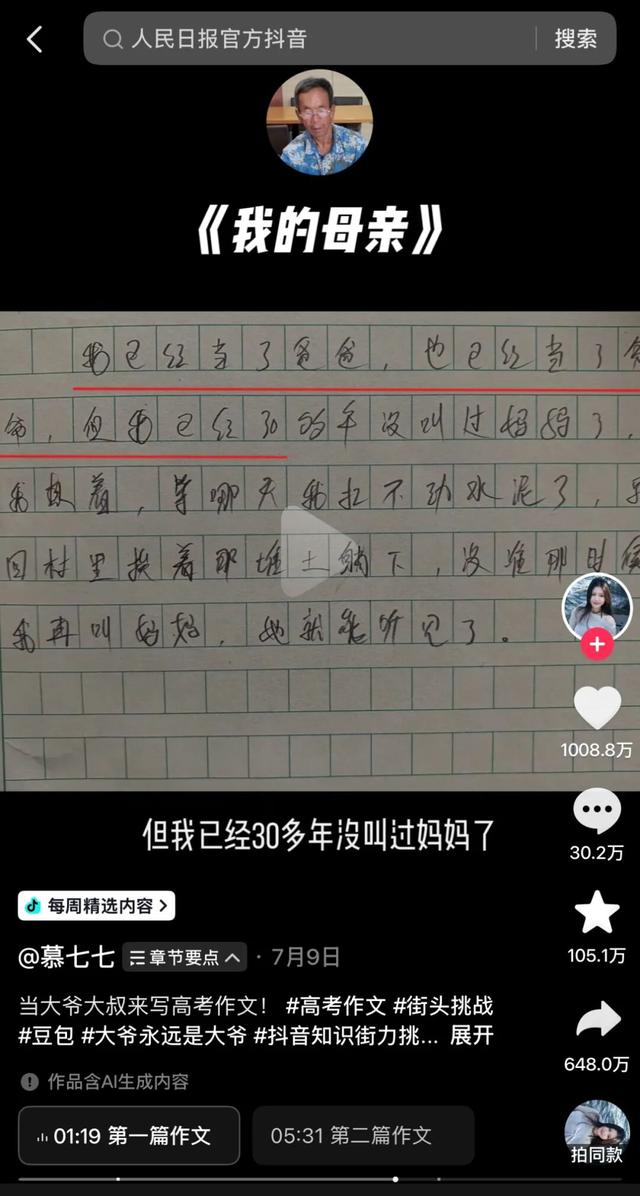 人民日报官方抖音
搜索
《我的母亲》
我已经当了爸爸，也已经当了爷
爷，但我已经30多年没叫过妈妈了，
我想着，等哪天我扛不动水泥了，
回村里挨着那堆土躺下，没准那时候
我再叫妈妈，她就能听见了。
1008.8万
但我已经30多年没叫过妈妈了
30.2万
每周精选内容
105.1万
@慕七七 章节要点 · 7月9日
当大爷大叔来写高考作文！ #高考作文 #街头挑战
#豆包 #大爷永远是大爷 #抖音知识街力挑... 展开
648.0万
作品含AI生成内容
01:19 第一篇作文
05:31 第二篇作文
拍同款